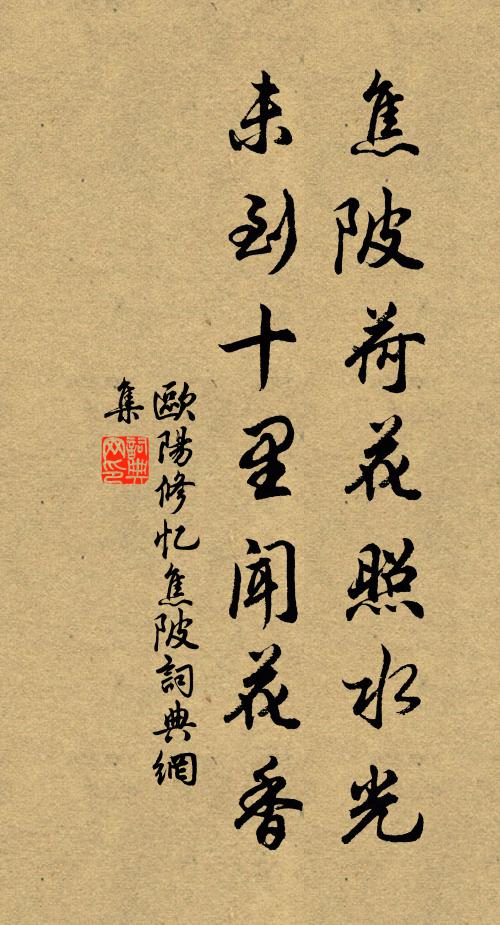 焦陂荷花照水光
未到十里聞花香
歐陽修忆焦陂詞典網
集
詞典网印